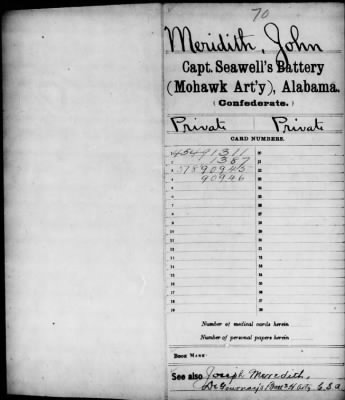 70
Meridith, John
Capt. Seawell's Battery
(Mohawk Art'y), Alabama.
(Confederate.)
Private Private
CARD NUMBERS.
1 45491311 20
2 1387 21
3 57890945 22
4 90946 23
5 24
6 25
7 26
8 27
9 28
10 29
11 30
12 31
13 32
14 33
15 34
16 35
17 36
18 37
19 38
Number of medical cards herein
Number of personal papers herein
BOOK MARK:
See also Joseph Meredith,
Batt H'Art'y C.S.A.